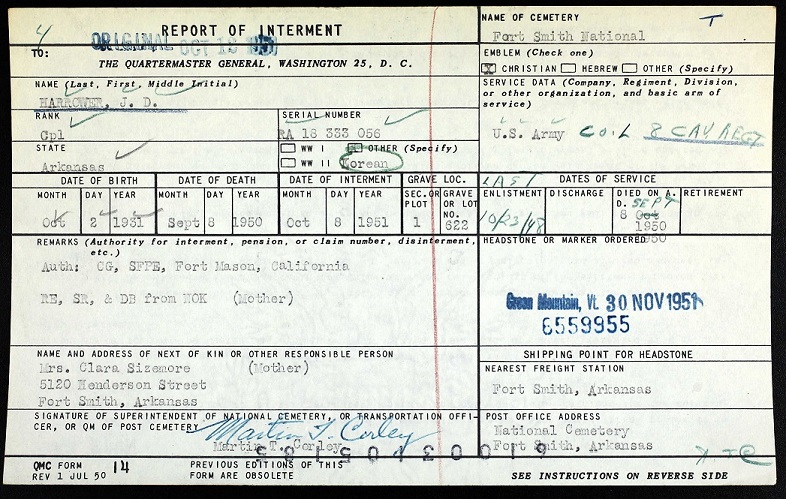 4 REPORT OF INTERMENT
ORIGINAL OCT 18
TO:
THE QUARTERMASTER GENERAL, WASHINGTON 25, D. C.
NAME OF CEMETERY T
Fort Smith National
EMBLEM (Check one)
X CHRISTIAN HEBREW OTHER (Specify)
NAME (Last, First, Middle Initial)
HARROWER, J. D.
SERVICE DATA (Company, Regiment, Division,
or other organization, and basic arm of
service)
U.S. Army CO. L 8 CAV REGT
RANK SERIAL NUMBER
Cpl RA 18 333 056
STATE
Arkansas
WW I OTHER (Specify)
WW II Korean
DATE OF BIRTH DATE OF DEATH DATE OF INTERMENT GRAVE LOC. DATES OF SERVICE
MONTH DAY YEAR MONTH DAY YEAR MONTH DAY YEAR SEC. OR PLOT GRAVE OR LOT NO. LAST ENLISTMENT DISCHARGE DIED ON A. D. RETIREMENT
Oct 2 1931 Sept 8 1950 Oct 8 1951 1 622 10/23/48 8 Oct SEPT
1950
REMARKS (Authority for interment, pension, or claim number, disinterment,
etc.)
Auth: CG, SFPE, Fort Mason, California
RE, SR, & DB from NOK (Mother)
HEADSTONE OR MARKER ORDERED
1950
Green Mountain, Vt. 30 NOV 1951
6559955
NAME AND ADDRESS OF NEXT OF KIN OR OTHER RESPONSIBLE PERSON
Mrs. Clara Sizemore (Mother)
5120 Henderson Street
Fort Smith, Arkansas
SHIPPING POINT FOR HEADSTONE
NEAREST FREIGHT STATION
Fort Smith, Arkansas
SIGNATURE OF SUPERINTENDENT OF NATIONAL CEMETERY, OR TRANSPORTATION OFFI-
CER, OR QM OF POST CEMETERY
Martin T. Corley
Martin T. Corley
POST OFFICE ADDRESS
National Cemetery
Fort Smith, Arkansas
QMC FORM 14
REV 1 JUL 50
PREVIOUS EDITIONS OF THIS
FORM ARE OBSOLETE
SEE INSTRUCTIONS ON REVERSE SIDE